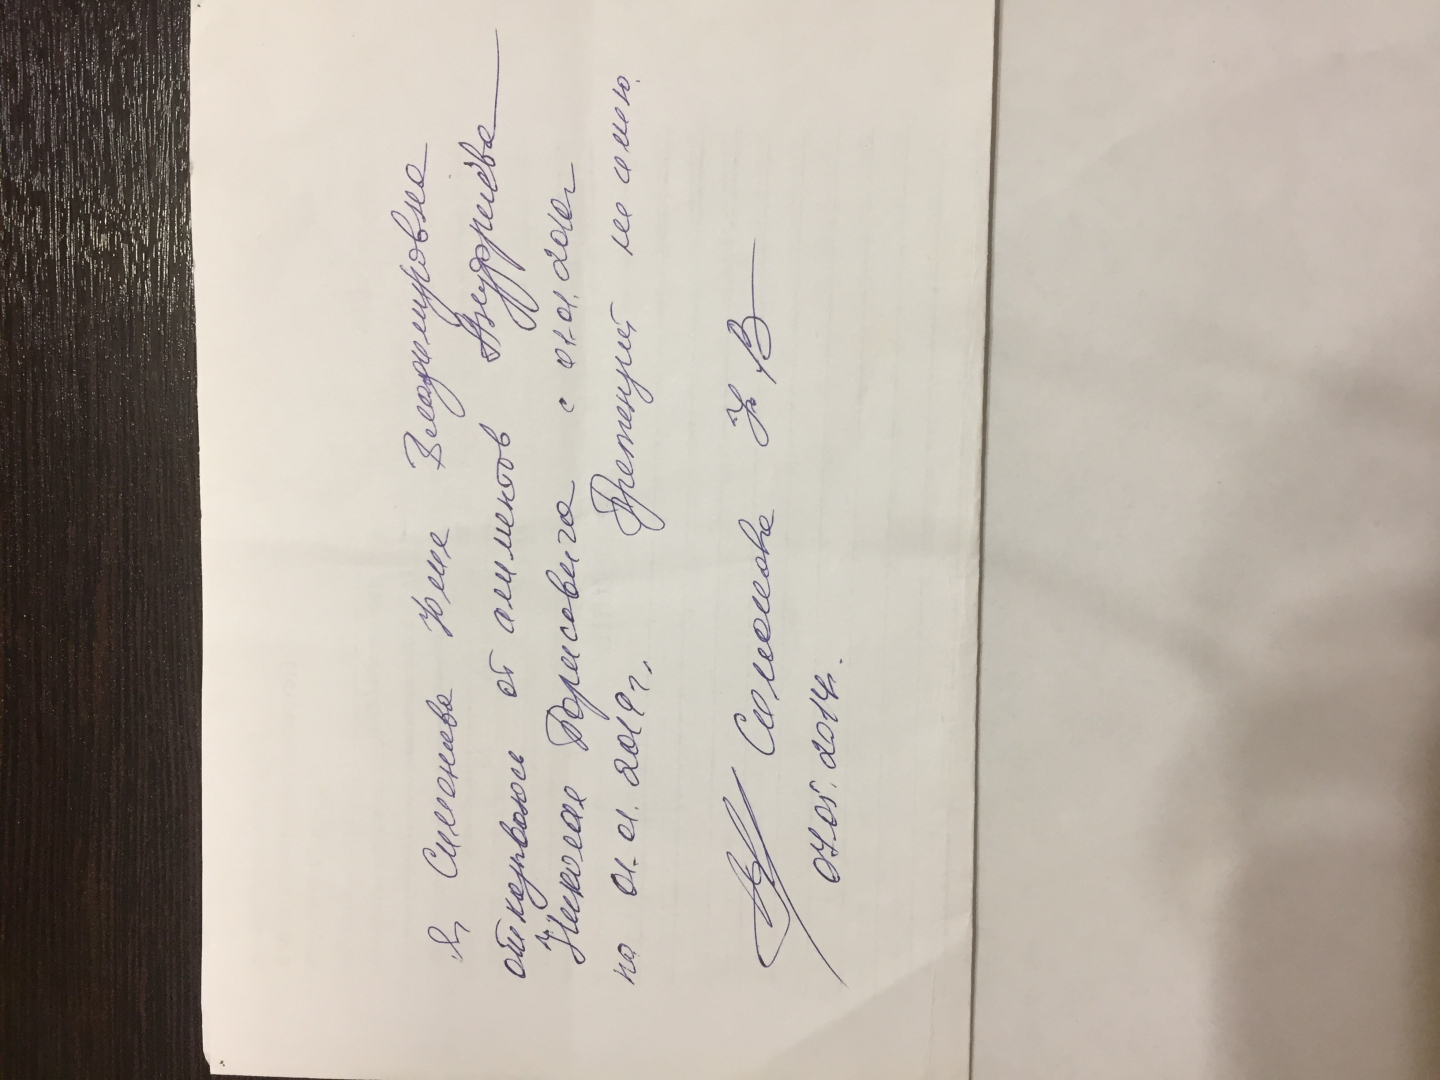 Я, Симонова Юлия Владимировна
отказываюсь от алиментов Ануфриева
Николая Борисовича с 01.01.2018г
по 01.01.2019г. Претензий не имею.
Симонова Ю. В
07.05.2014г.